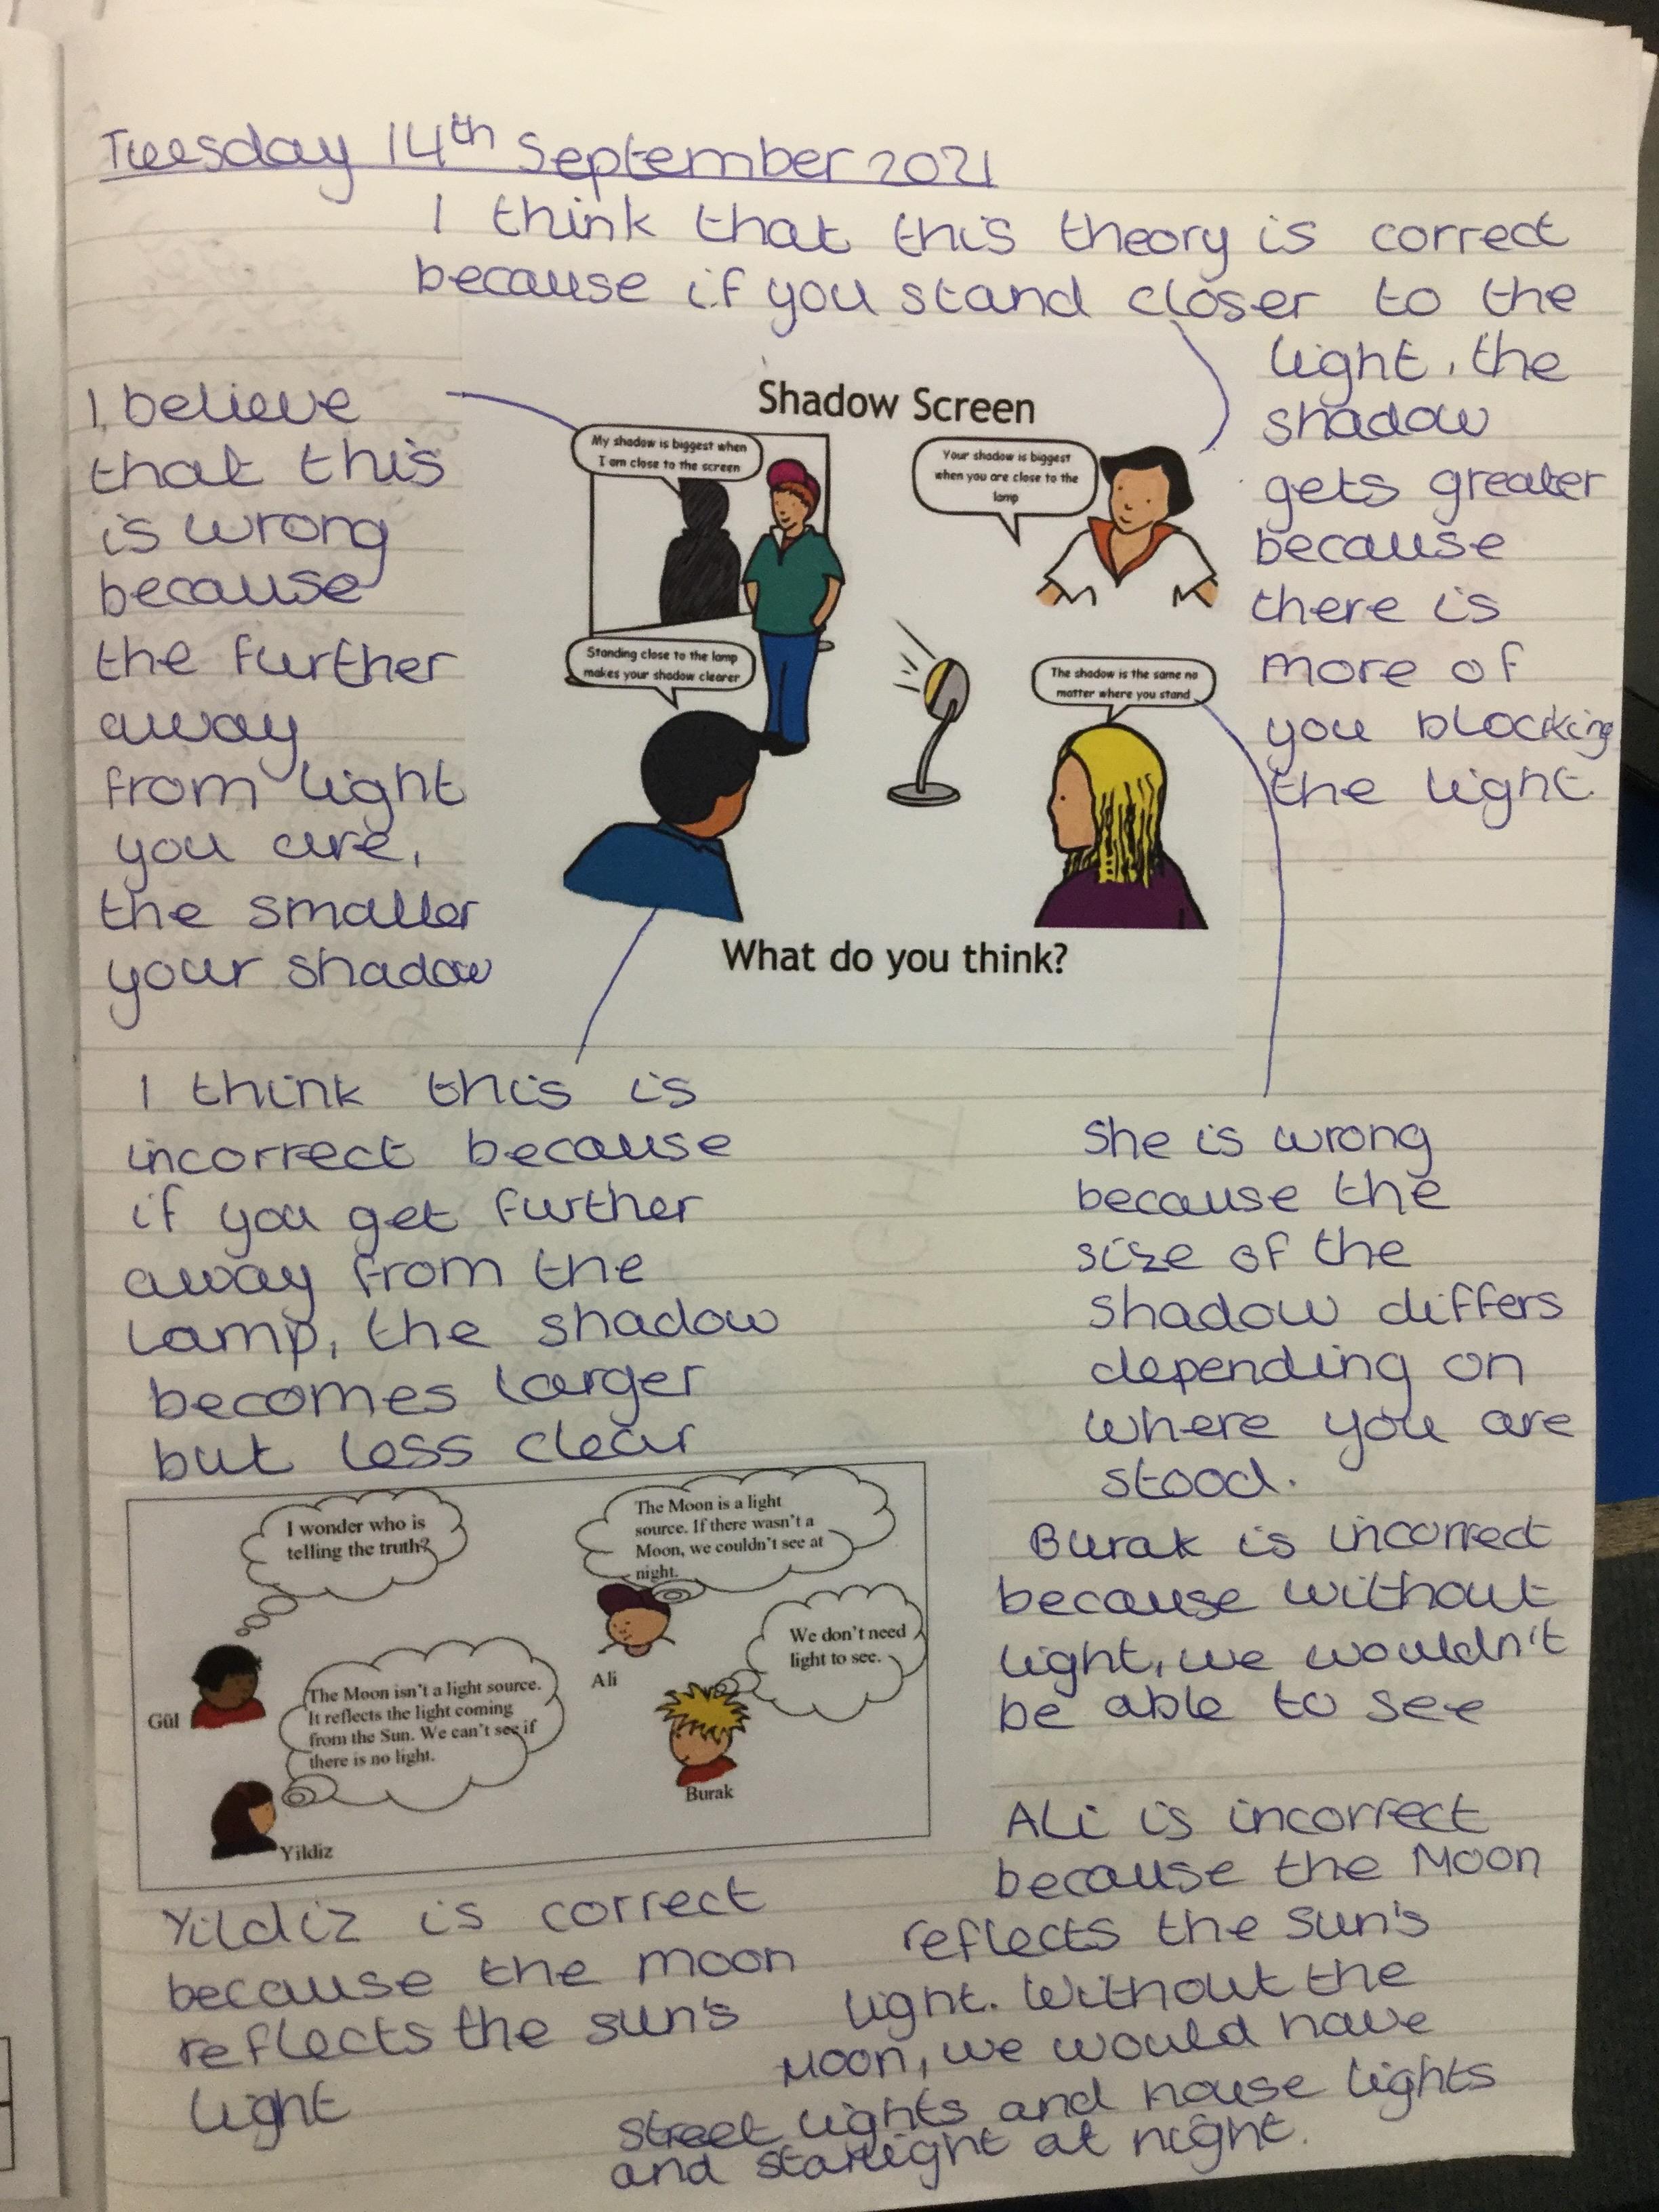 Tuesday 14th September 2021
I think that this theory is correct
because if you stand closer to the
light, the
shadow
gets greater
because
there is
more of
you blocking
the light.
I believe
that this
is wrong
because
the further
away
from light
you are,
the smaller
your shadow
Shadow Screen
My shadow is biggest when
I am close to the screen
Your shadow is biggest
when you are close to the
lamp
Standing close to the lamp
makes your shadow clearer
The shadow is the same no
matter where you stand
What do you think?
I think this is
incorrect because
if you get further
away from the
lamp, the shadow
becomes larger
but less clear
She is wrong
because the
size of the
shadow differs
depending on
where you are
stood.
I wonder who is
telling the truth?
Gül
The Moon is a light
source. If there wasn't a
Moon, we couldn't see at
night.
Ali
We don't need
light to see.
Burak
The Moon isn't a light source.
It reflects the light coming
from the Sun. We can't see if
there is no light.
Yildiz
Burak is incorrect
because without
light, we wouldn't
be able to see
Yildiz is correct
because the moon
reflects the sun's
light
Ali is incorrect
because the Moon
reflects the sun's
light. Without the
Moon, we would have
street lights and house lights
and starlight at night.